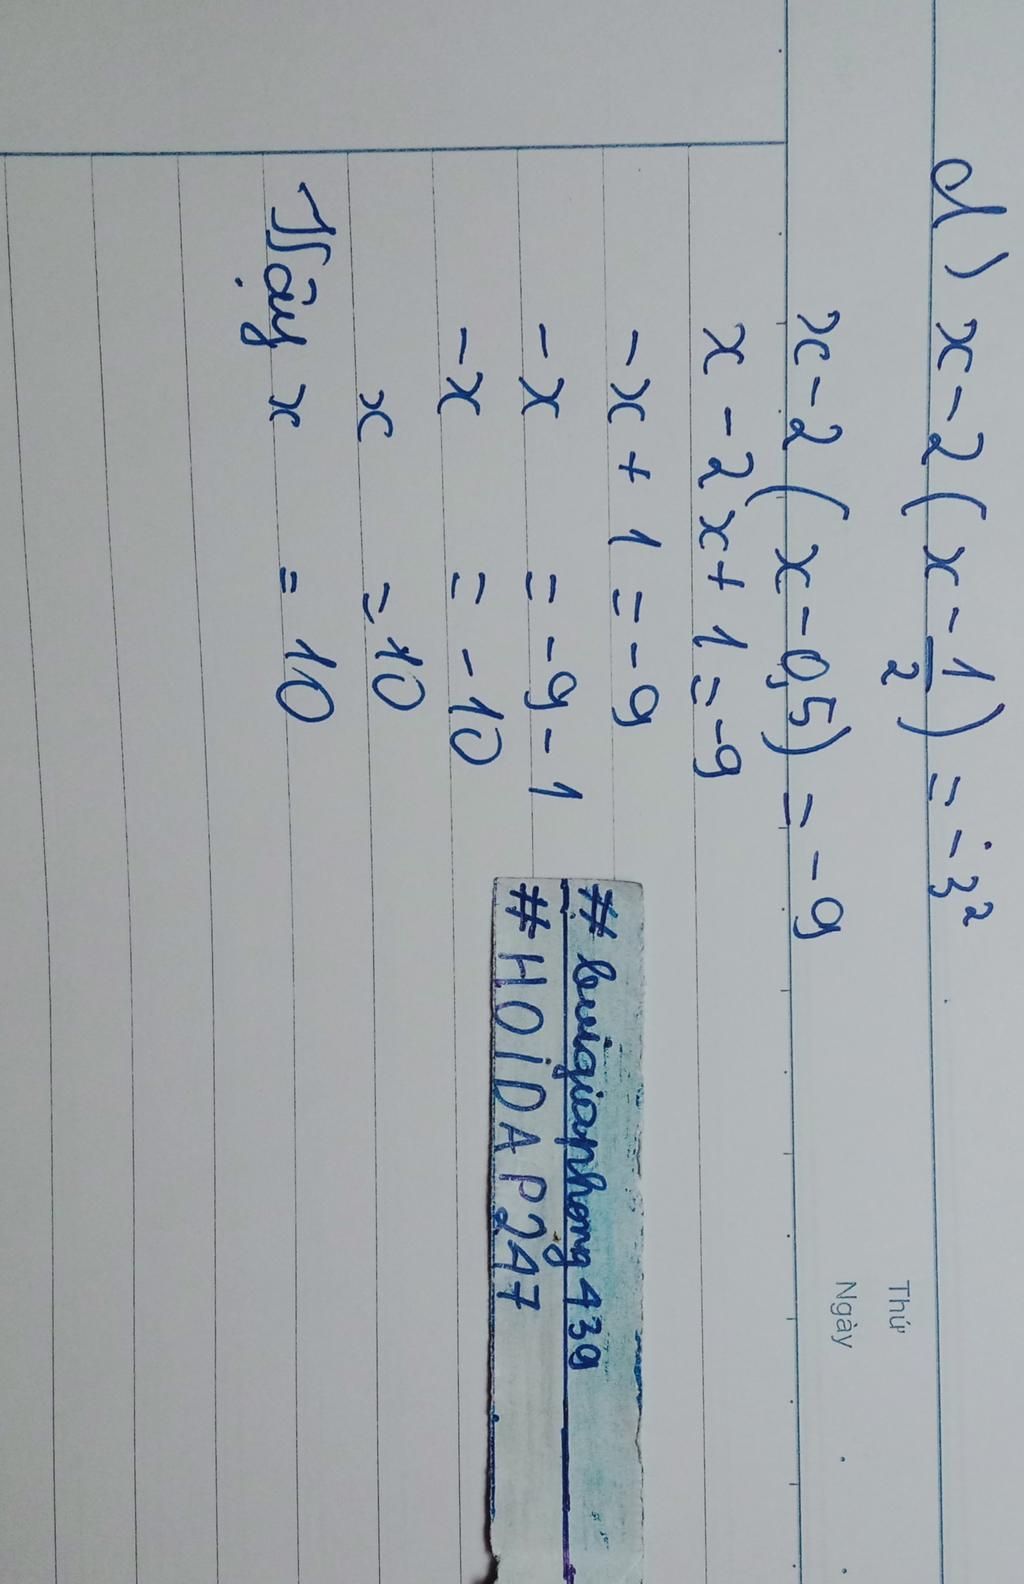 Thứ
Ngày
d) x - 2 ( x - 1/2 ) = - 3²
x - 2 ( x - 0,5 ) = - 9
x - 2x + 1 = -9
- x + 1 = - 9
- x = - 9 - 1
- x = - 10
x = 10
Vậy x = 10
# buigiaphong439
# HOIDAP247